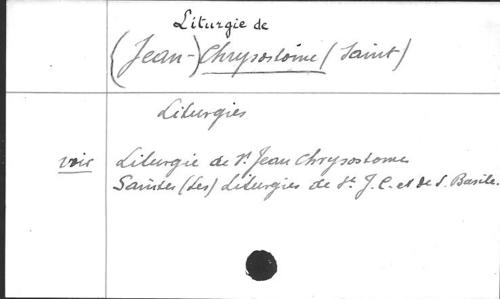 Liturgie de
(Jean-) Chrysostome (Saint)
Liturgies
voir Liturgie de St Jean Chrysostome
Saintes (Les) Liturgies de St. J. C. et de S. Basile.